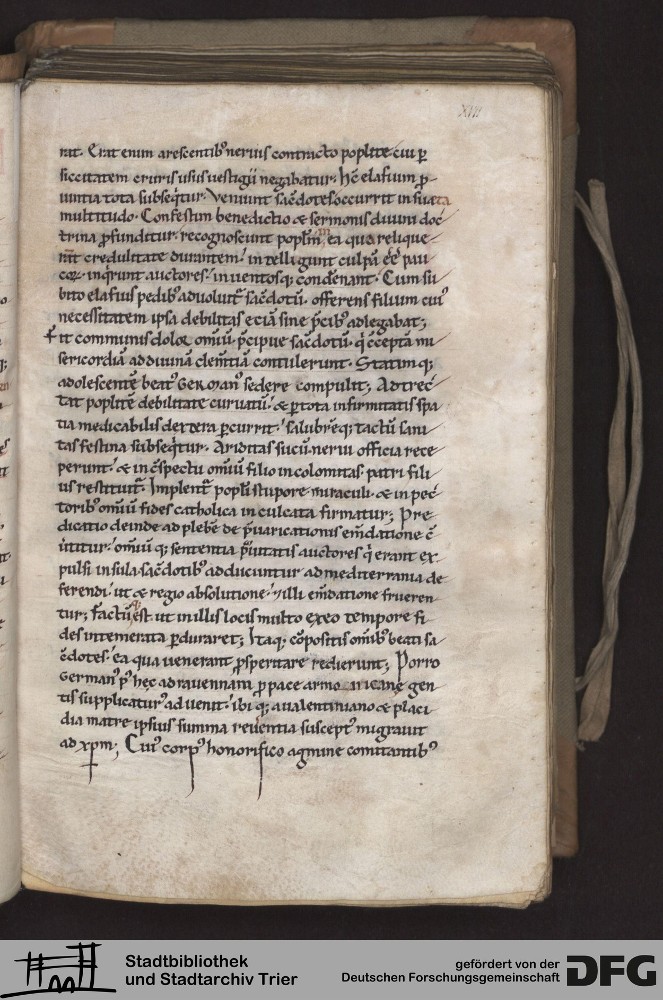 XIII
rat. Erat enim arescentib; neruis contracto poplite cui p̄
siccitatem cruris usus uestigii negabatur. hc̄ elafium p̄
uintia tota subseq̄tur. Veniunt sac̄dotes occurrit insueta
multitudo. Confestim benedictio & sermonis diuini doc
trina p̄funditur. recognoscunt popl̄m in ea qua relique
rat credulitate durantem. intelligunt culpā ee᷄ pau
coꝝ. inq̄runt auctores. inuentosq; condēnant. Cum su
bito elafius pedib; aduoluit᷑ sac̄dotū. offerens filium cui᷒
necessitatem ipsa debilitas eciā sine p̄cib; adlegabat;
Fit communis dolor omīū p̄cipue sac̄dotū. q̄ c̄cepta mi
sericordiā ad diuinā clem̄tiā contulerunt. Statim q;
adolescentē beat᷒ German᷒ sedere compulit; Adtrec
tat poplitē debilitate curuatū. & p̄ tota infirmitatis spa
tia medicabilis dextera p̄currit. salubrēq; tactū sani
tas festina subseq̄tur. Ariditas sucū. nerui officia rece
perunt. & in c̄spectu omīū filio incolomitas. patri fili
us restituit᷑. Implent᷑ popl̄i stupore miraculi. & in pec
torib; omīū fides catholica inculcata firmatur; Pre
dicatio deinde ad plebē de p̄uaricationis em̄datione c̄
uertitur. omīū q; sententia p̄uitatis auctores q̄ erant ex
pulsi insula. sac̄dotib; adducuntur ad mediterrania de
ferendi. ut & regio absolutione. & illi em̄datione frueren
tur; factū q; est. ut in illis locis multo ex eo tempore fi
des intemerata p̄duraret; Itaq; cōpositis omīb; beati sa
c̄dotes. ea qua uenerant p̄speritate redierunt; Porro
German᷒ p᷒ hęc ad rauennam p̄ pace armoricanę gen
tis supplicatur᷒ aduenit. ibi q; a ualentiniano & placi
dia matre ipsius summa reūentia suscept᷒ migrauit
ad xp̄m; Cui᷒ corp᷒ honorifico agmine comitantib;
Stadtbibliothek
und Stadtarchiv Trier
gefördert von der
Deutschen Forschungsgemeinschaft
DFG